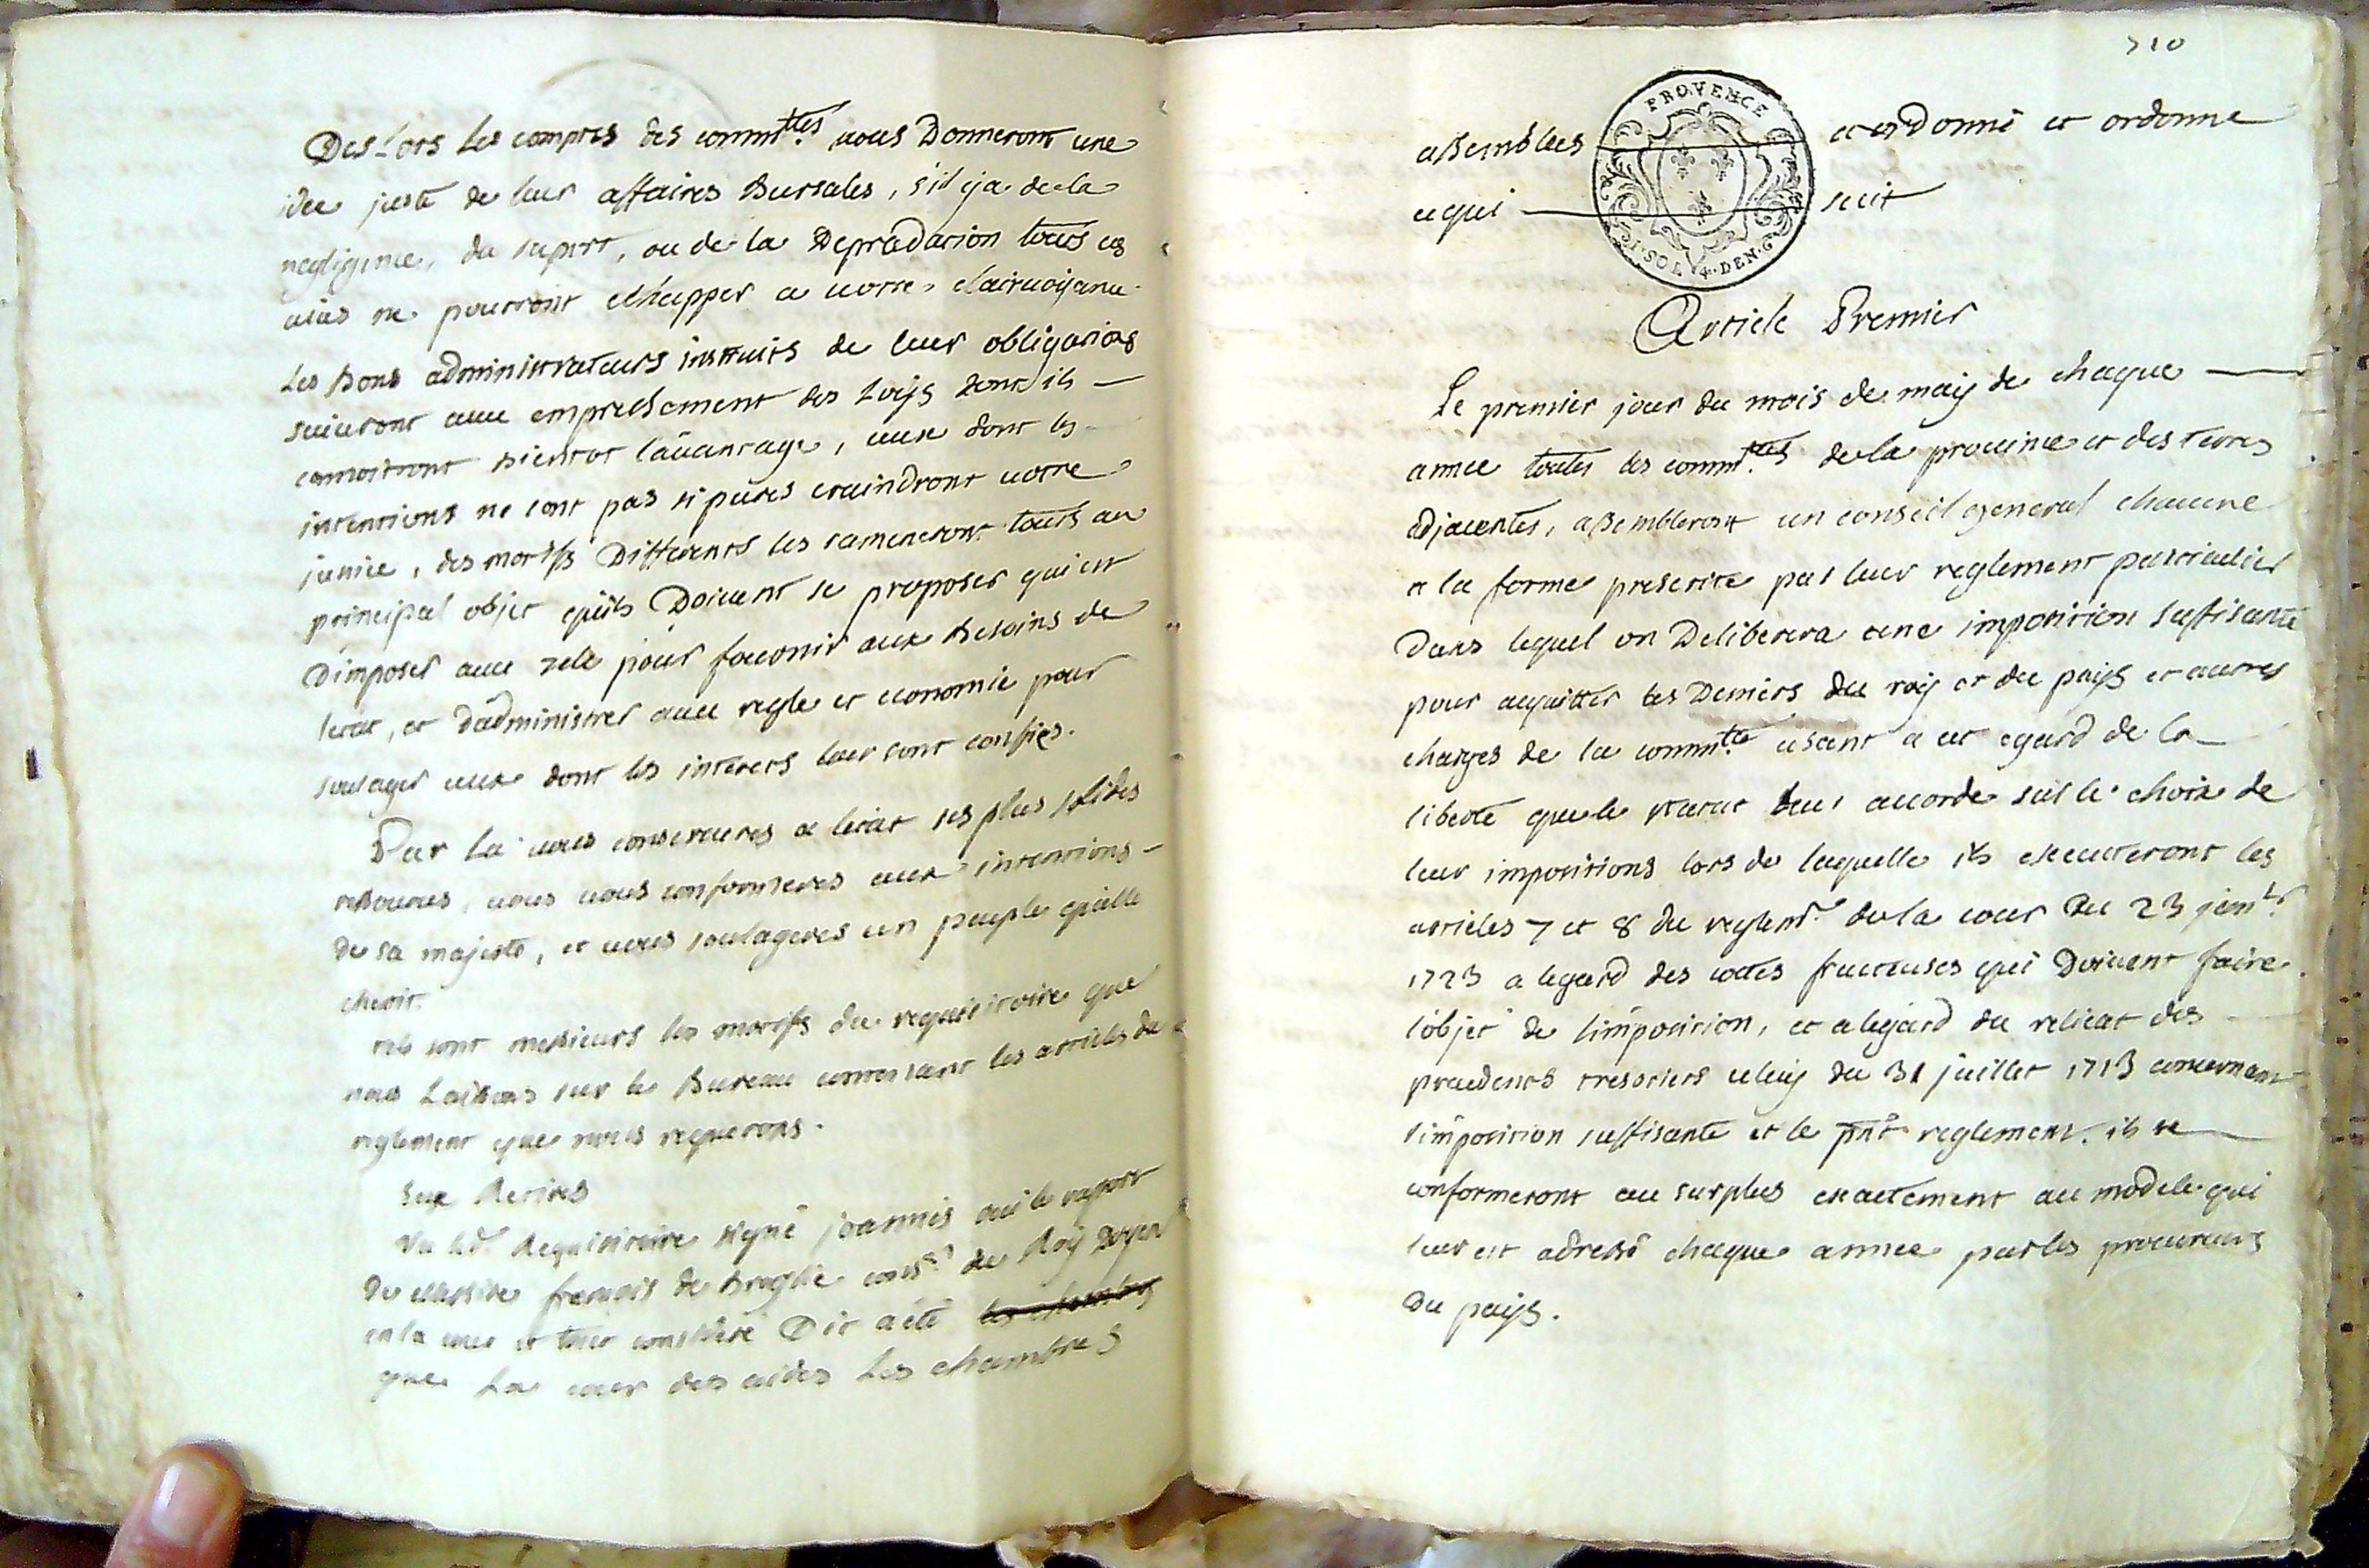 Des Lors les comptes des commttes vous Donneront une
idée juste de leur affaires Bursales, s'il y a de la
negligence, du suport, ou de la Depradation tous ces
vices ne pourront echapper a votre clairvoyance
Les Bons administrateurs instruits de leur obligations
suivront avec empressement des Loys dont ils
connoitront bientot l'avantage, ceux dont les
intentions ne sont pas si pures craindront votre
justice, des motifs Differents les rameneront tous au
principal objet quils Doivent se proposer qui est
D'imposer avec zele pour fournir aux besoins de
letat, et d'administrer avec regle et economie pour
soulager ceux dont les interets leur sont confiés.
Par La vous conserverés a letat ses plus solides
ressources, vous vous conformerés aux intentions
de sa majesté, et vous soulagerés un peuple quelle
cherit.
tels sont messieurs les motifs du requisitoire que
nous Laissons sur le Bureau contenant les articles du
reglement que nous requerons.
Eux Retirés
Vu led. Requisitoire signé joannis oui le raport
de messire françois de Broglie consr. du Roy doyen
en la cour et tout consideré Dit a eté les chambres
que La cour des aides Les chambres
310
PROVENCE
I. SOL 4. DEN. G
assemblées a ordonné et ordonne
ce qui suit
Article Premier
Le premier jour du mois de may de chaque
année toutes les commttes de la province et des terres
adjacentes, assembleront un conseil general chacune
a la forme prescrite par leur reglement particulier
Dans lequel on Deliberera une imposition suffisante
pour acquitter les Deniers du roy et du pays et autres
charges de la commte usant a cet egard de la
liberté que le statut leur accorde sur le choix de
leur impositions lors de laquelle ils executeront les
articles 7 et 8 du reglemt. de la cour du 23 janvr.
1723 a legard des cottes fructueuses qui Doivent faire
l'objet de limposition, et a legard du relicat des
precedents tresoriers celuy du 31 juillet 1713 concernant
limposition suffisante et le pnt reglement. ils se
conformeront au surplus exactement au modele qui
leur est adressé chaque année par les procureurs
du pays.